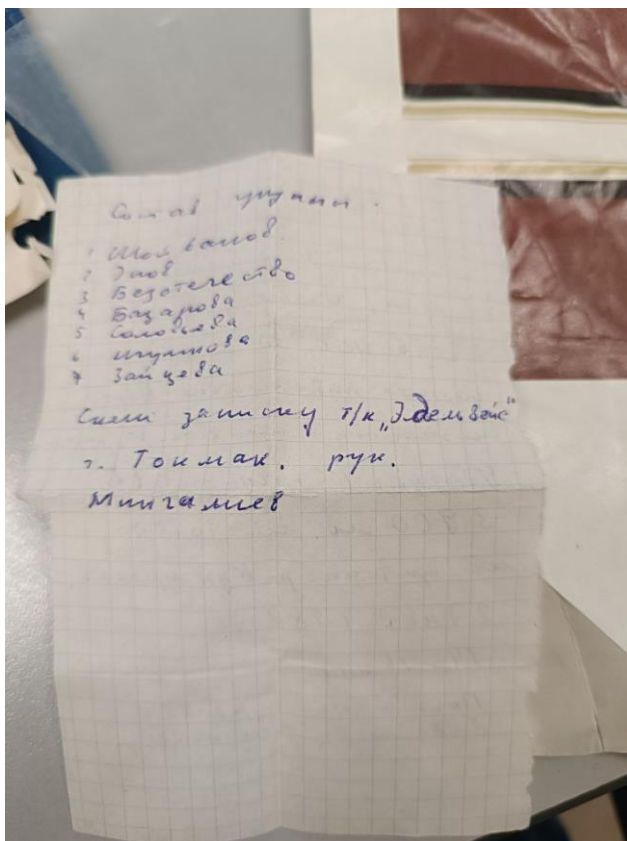 Состав группы.
1
2 Эпов
3 Безотечество
4 Базарова
5 Соловьева
6
7 Зайцева
Сняли записку т/к „Эдельвейс"
г. Токмак. рук.
Мингалиев